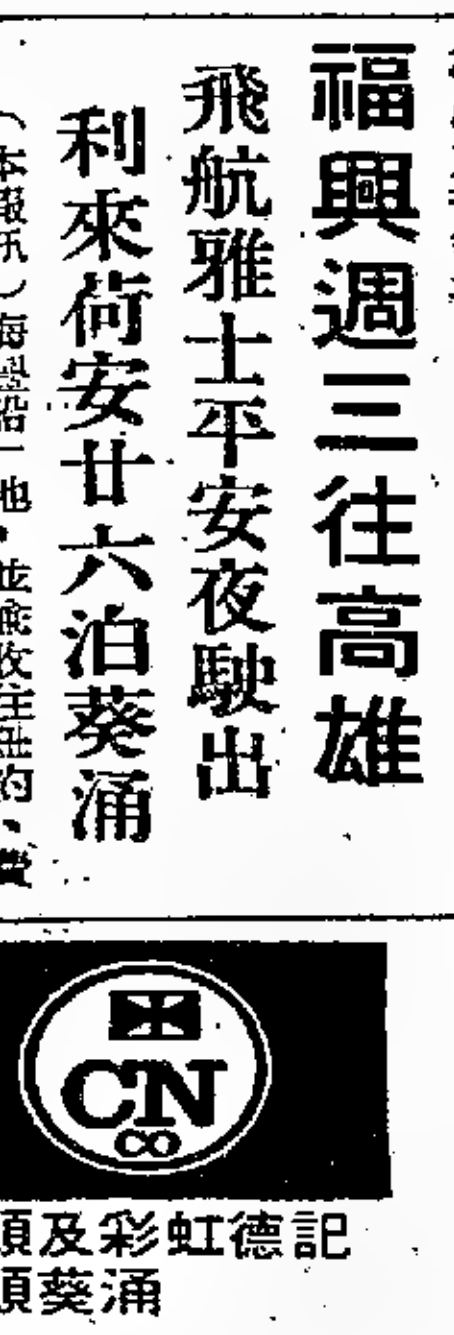 福興週三往高雄
飛航雅士平安夜駛出
利來荷安廿六泊葵涌
（本報訊）海
CN
CO
及彩虹德記
葵涌